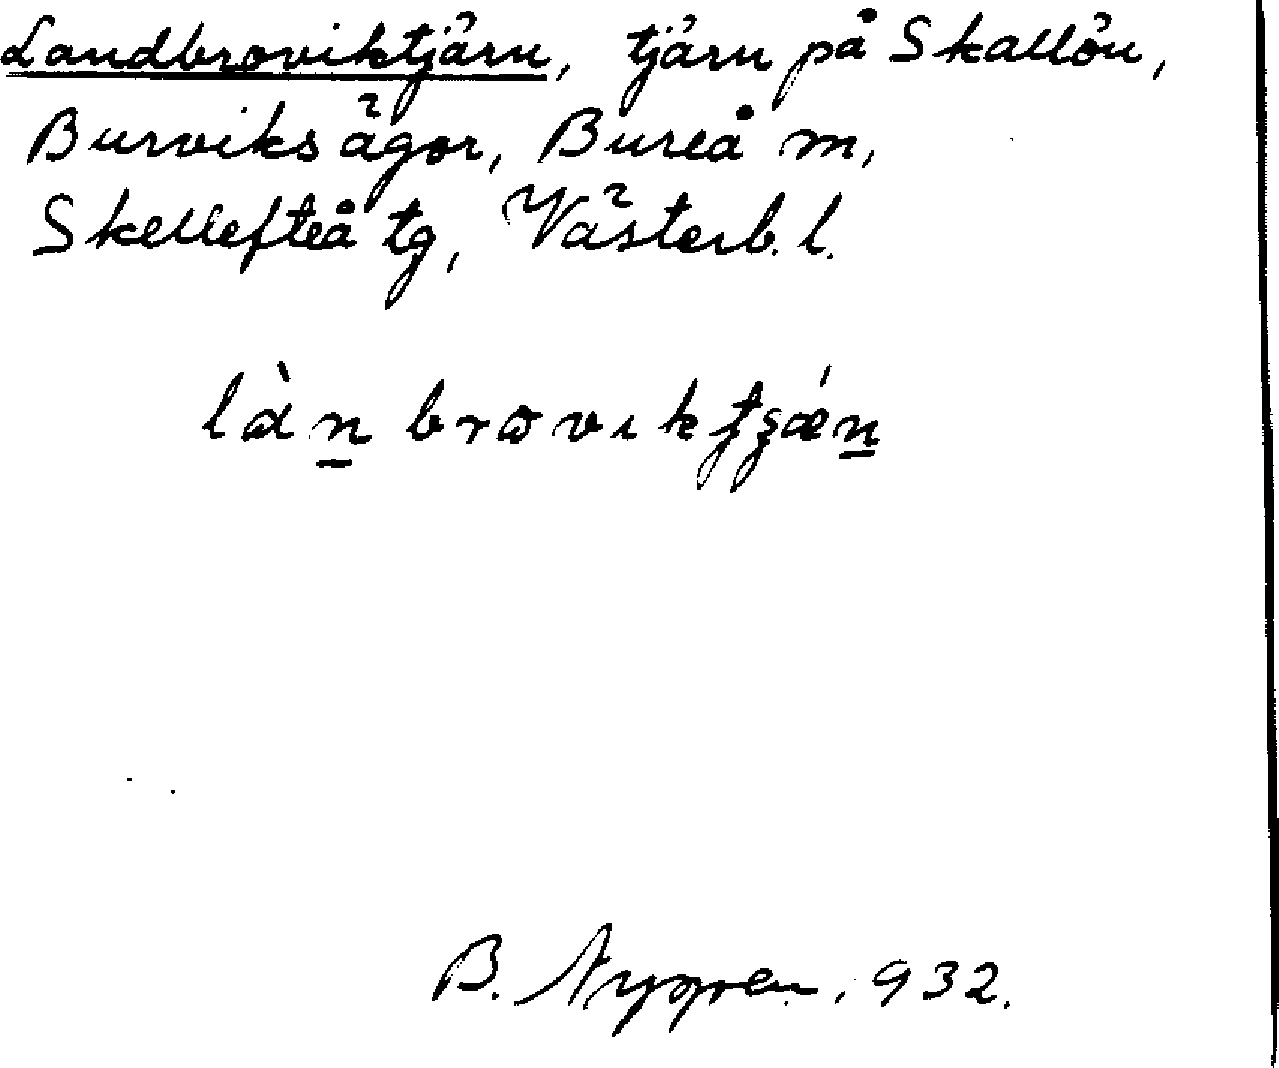 Landbroviktjärn, tjärn på Skallön,
Burviks ägor, Bureå m,
Skellefteå tg, Västerb. l.
B. Nygren. 932.